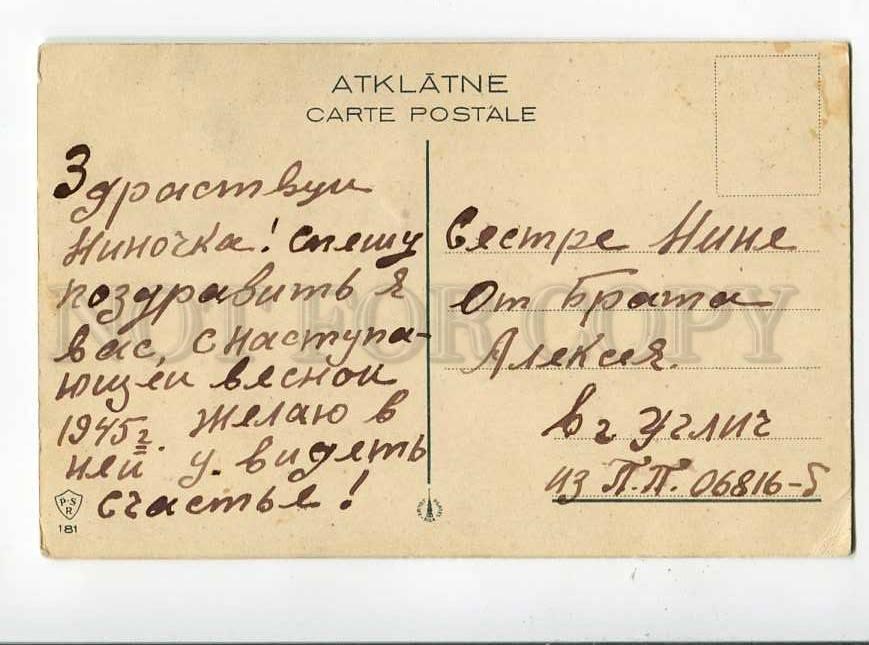 ATKLĀTNE
CARTE POSTALE
Здраствуи
Ниночка! Спешу
поздравить я
вас, с наступа-
ющеи веснои
1945г. Желаю в
ней у.видеть
счастье!
Сестре Нине
От Брата
Алексея.
в г. Углич
из П.П. 06816-Б
P.S
R
181
NOT FOR COPY